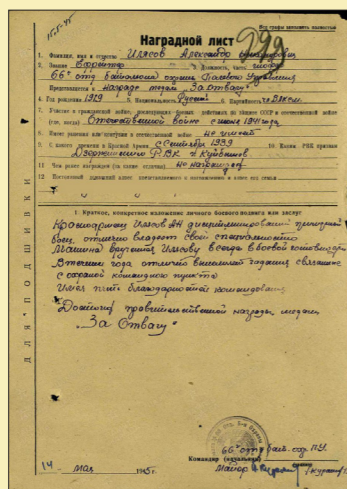 15.5.45
Все графы заполнять полностью
299
Наградной лист
1. Фамилия, имя и отчество Илясов Александр
2. Звание Ефрейтор 3. Должность, часть
66 отд. батальона охраны Полевого Управления
Представляется к награде медаль "За Отвагу"
4. Год рождения 1919 5. Национальность Русский 6. Партийность чл. ВЛКСМ
7. Участие в гражданской войне, последующих боевых действиях по защите СССР и отечественной войне
(где, когда) Отечественной войне с июня 1941 года
8. Имеет ли ранения или контузии в отечественной войне не имеет
9. С какого времени в Красной Армии с Сентября 1939 10. Каким РВК призван
Дзержинского РВК г. Куйбышев
11. Чем ранее награжден (за какие отличия) не награжден
12. Постоянный домашний адрес представляемого к награждению и адрес его семьи
I. Краткое, конкретное изложение личного боевого подвига или заслуг
Красноармеец Илясов АН дисциплинированный
боец, отлично владеет своей специальностью
Машина врученная Илясову всегда в боевой готовности
В течении года отлично выполнял задания связанные
с охраной командного пункта
Имел пять благодарностей командования
Достоин правительственной награды медали
"За Отвагу"
ДЛЯ ПОДШИВКИ
66 отд бат. охр. ПУ
Командир (начальник)
Майор
14 мая 1945 г.